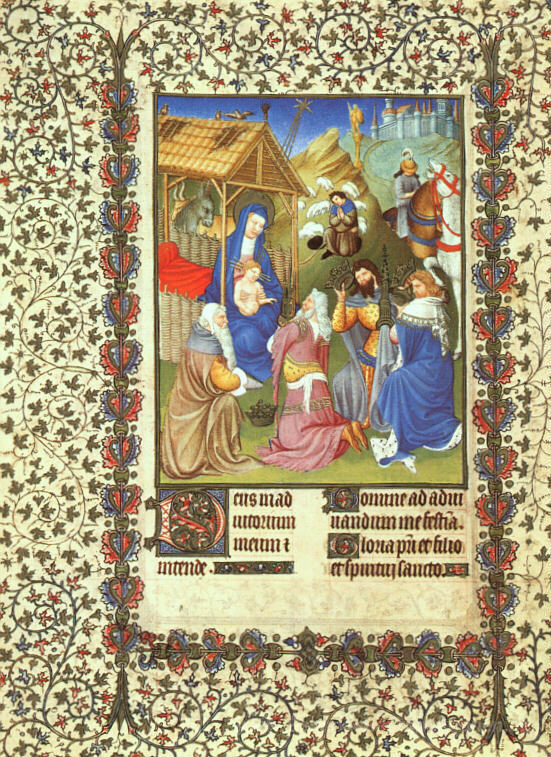 Deus in ad
iutorium
meum i
intende.
Domine ad adiu
uandum me festīa.
Gloria pr̄i et filio
et spiritui sancto.